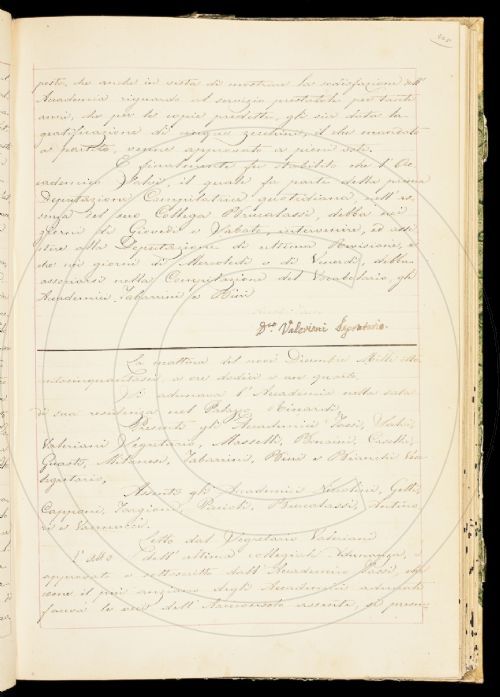 posto, che anche in vista di mostrare la sodisfazione dell'
Accademia riguardo al servizio prestatole per tanti
anni, che per le copie predette, gli sia data la
gratificazione di cinque zecchini, il che mandato
a partito, venne approvato a pieni voti.
E finalmente fu stabilito che l'Ac-
cademico Valeri, il quale fa parte della prima
Deputazione Compilatrice quotidiana nell'as-
senza del suo Collega Brucalassi, debba nei
giorni di Giovedì e Sabato, intervenire, ed assi-
stere alla Deputazione di ultima Revisione, e
che nei giorni di Mercoledì e di Venerdì, debba
associarsi nella Compilazione del Vocabolario, gli
Accademici Tabarrini e Bini
Valeriani Segretario
La mattina del nove Dicembre Mille otto-
centocinquantasei, a ore dodici e un quarto,
Si adunava l'Accademia nella sala
di sua residenza nel Palazzo Rinardi,
Presenti gli Accademici Tassi,
Valeriani Segretario, Masselli, Bencini, Caselli,
Guasti, Milanesi, Tabarrini, Bini e Bianchi Vice
segretario,
Assenti gli Accademici Nicolini, Gelli,
Capponi, Targioni, Parioli, Brucalassi, Antino-
ri e Vannucci.
Letto dal Segretario Valeriani
l'atto dell'ultima collegiale Adunanza, e
approvato e sottoscritto dall'Accademico Tassi, che
come il più anziano degli Accademici adunati
faceva le veci dell'Arciconsolo assente, si